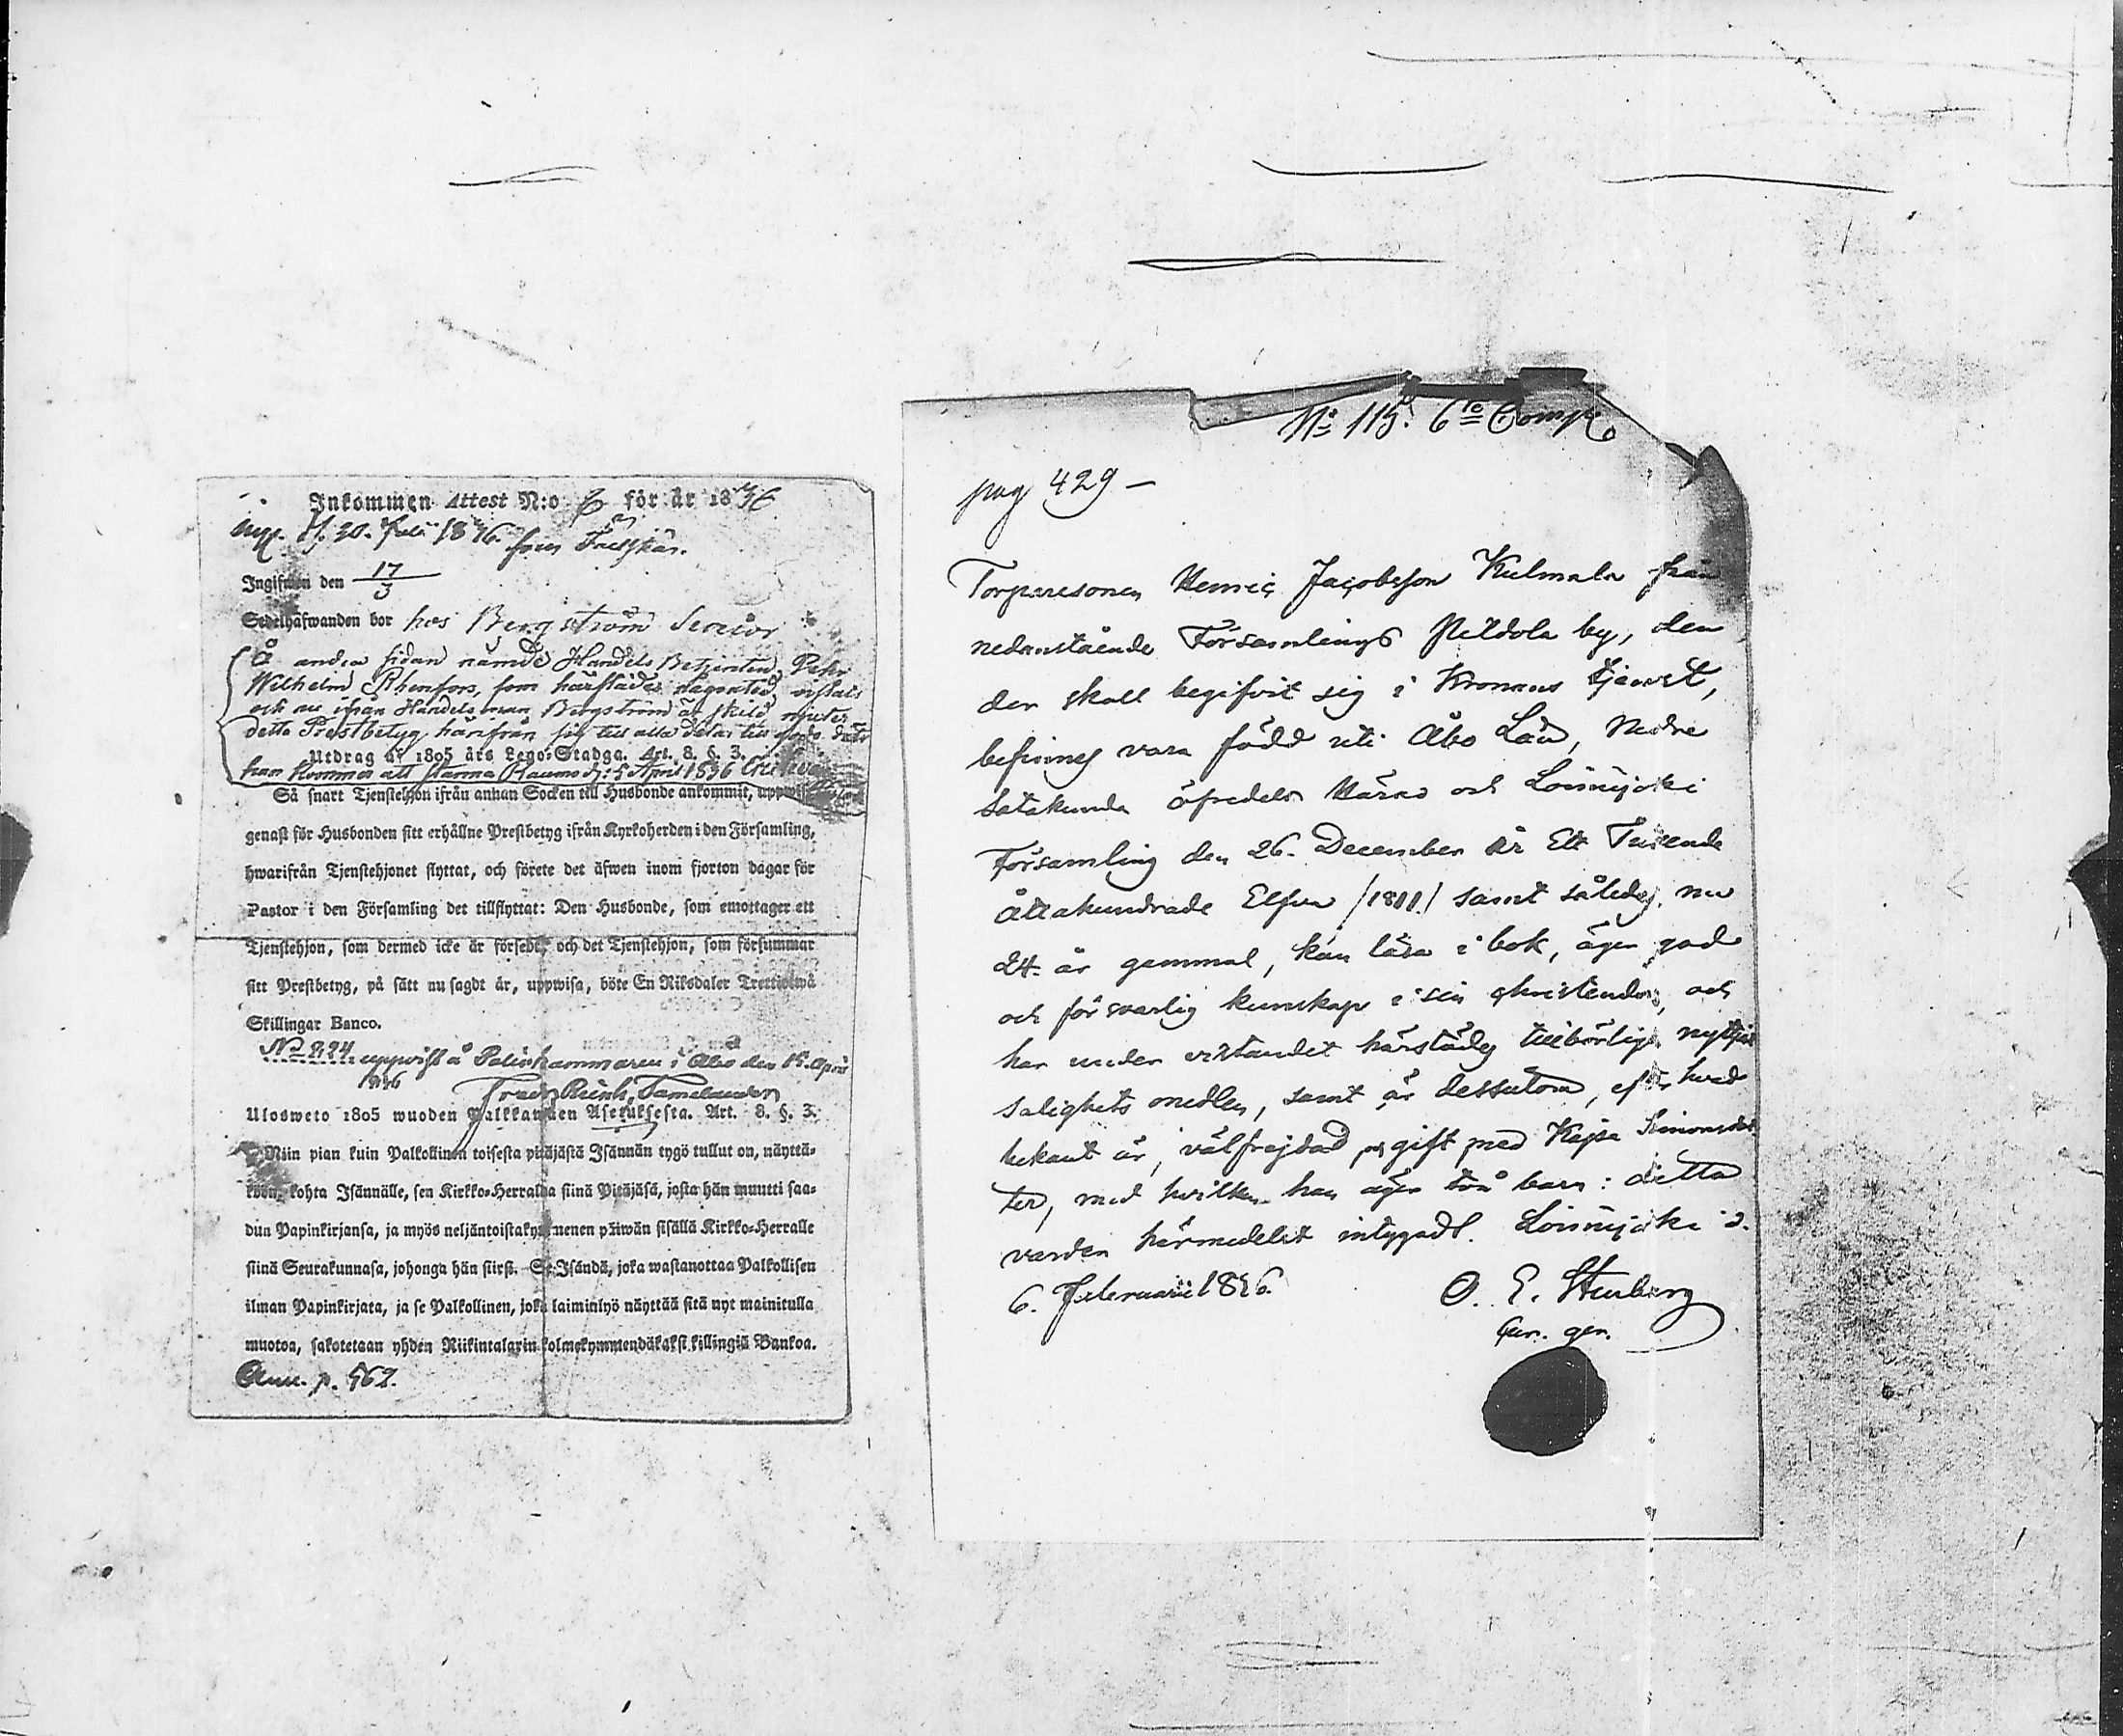 Inkommen Attest N:o 6 för år 1836
d. 20. Juli 1836. från
Ingifwen den 17/3
Sedelhafwanden bor hos Bergström Senior
Å andra sidan nämde Handels Betjenten Pehr
Wilhelm Rhenfors, som härstädes någon tid vistats
och nu ifrån Handelsman Bergström är skild njuter
detta Prestbetyg härifrån sig till alla delar till godo där
Utdrag af 1805 års Lego-Stadga. Art. 8. §. 3.
han kommer att stanna Raumo d: 5 April 1836
Så snart Tjenstehjon ifrån annan Socken till Husbonde ankommit, uppwise
genast för Husbonden sitt erhållne Prestbetyg ifrån Kyrkoherden i den Församling,
hwarifrån Tjenstehjonet flyttat, och förete det äfwen inom fjorton dagar för
Pastor i den Församling det tillflyttat: Den Husbonde, som emottager ett
Tjenstehjon, som dermed icke är försedt, och det Tjenstehjon, som försummar
sitt Prestbetyg, på sätt nu sagdt är, uppwisa, böte En Riksdaler Trettiotwå
Skillingar Banco.
No 224 uppvist å Poliskammaren i Åbo den 15. April
1836
Ulosweto 1805 wuoden Palkkawäen Asetuksesta. Art. 8. §. 3.
Niin pian kuin Palkollinen toisesta pitäjästä Isännän tygö tullut on, näyttä-
köön, kohta Isännälle, sen Kirkko-Herralda siinä Pitäjäsä, josta hän muutti saa-
dun Papinkirjansa, ja myös neljäntoistakymmenen päiwän sisällä Kirkko-Herralle
siinä Seurakunnasa, johonga hän siirsi. Se Isändä, joka wastanottaa Palkollisen
ilman Papinkirjata, ja se Palkollinen, joka laiminlyö näyttää sitä nyt mainitulla
muotoa, sakotetaan yhden Riikintalarin kolmekymmendäkaksi killingiä Bankoa.
Ann. p. 562.
No 115. 6te Comp.
pag 429 –
Torparesonen Henric Jacobsson Kulmala från
nedanstående Församlings Peldola by, den
der skall begifvit sig i Kronans tjenst,
befinnes vara född uti Åbo Län, Nedre
Satakunda öfredels Härad och Loimijoki
Församling den 26. December År Ett Tusende
Åttahundrade Elfva /1811/ samt således nu
24. år gammal, kan läsa i bok, äger god
och försvarlig kunskap i sin christendom, och
har under vistandet härstädes tillbörligen nyttjat
salighets medlen, samt är dessutom, efter hvad
bekant är, välfrejdad, och gift med Kajsa Simonsdot
ter, med hvilken han äger två barn: detta
varder härmedelst intygadt. Loimijoki d.
6. Februarii 1836.
O. E. Stenberg